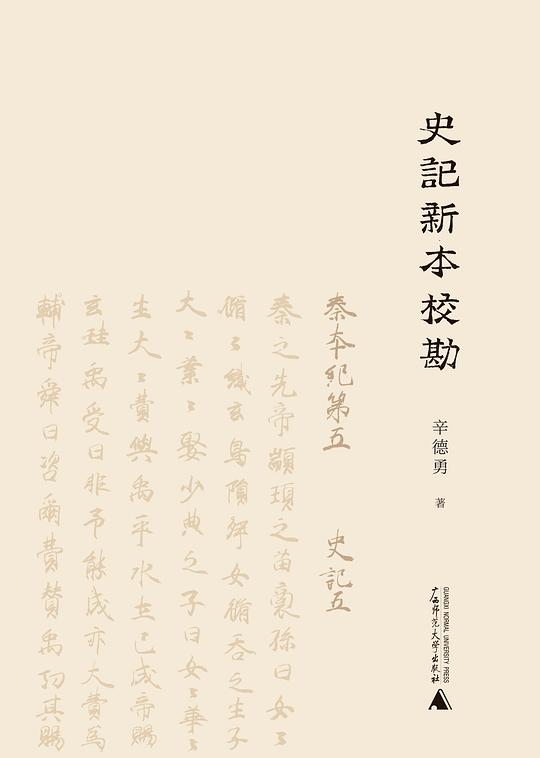 史記新本校勘
辛德勇 著
广西师范大学出版社
GUANGXI NORMAL UNIVERSITY PRESS
秦本紀第五 史記五
秦之先帝顓頊之苗裔孫曰女〻
脩〻織玄鳥隕卵女脩吞之生子
大〻業〻娶少典之子曰女〻華〻
生大〻費與禹平水土已成帝賜
玄珪禹受曰非予能成亦大費為
輔帝舜曰咨爾費贊禹功其賜